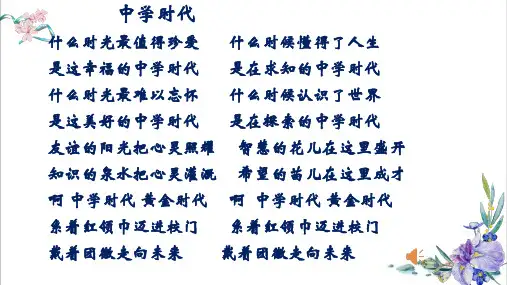 中学时代
什么时光最值得珍爱 什么时候懂得了人生
是这幸福的中学时代 是在求知的中学时代
什么时光最难以忘怀 什么时候认识了世界
是这美好的中学时代 是在探索的中学时代
友谊的阳光把心灵照耀 智慧的花儿在这里盛开
知识的泉水把心灵灌溉 希望的苗儿在这里成才
啊 中学时代 黄金时代 啊 中学时代 黄金时代
系着红领巾迈进校门 系着红领巾迈进校门
戴着团徽走向未来 戴着团徽走向未来